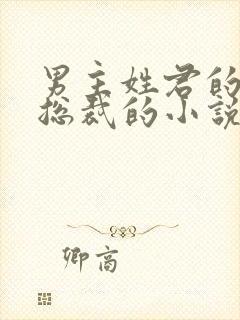 男主姓君的
总裁的小说
卿高